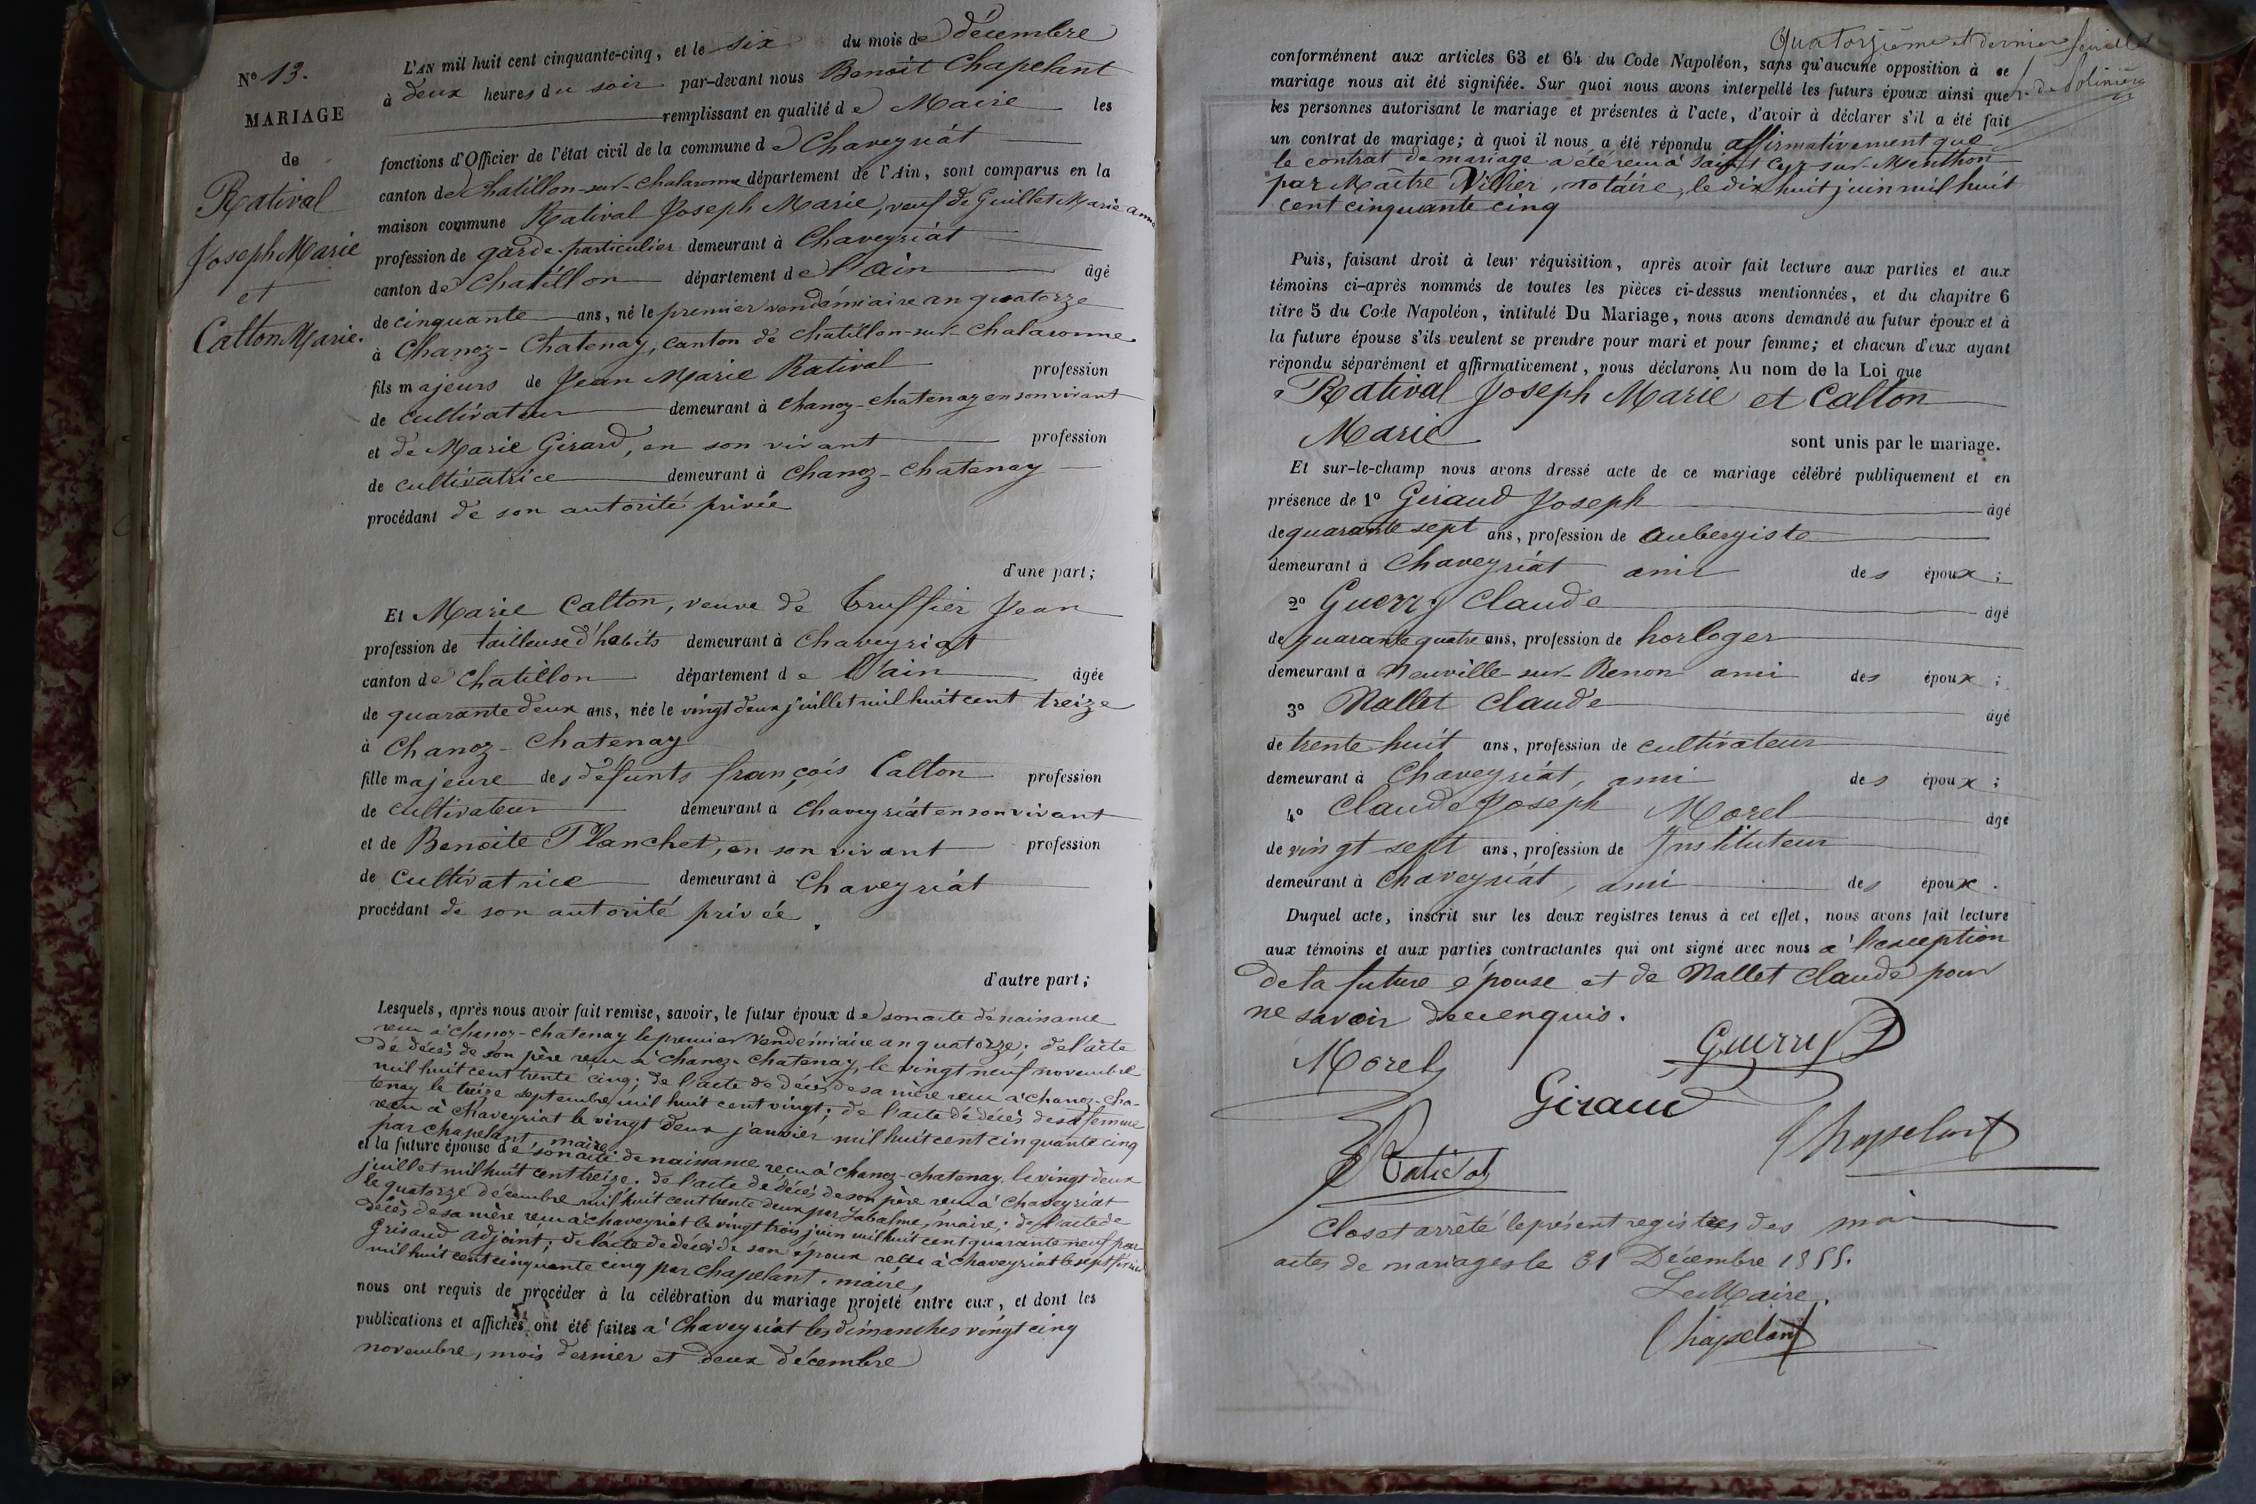 N° 13.
MARIAGE
de
Ratival
Joseph Marie
et
Calton Marie.
L'AN mil huit cent cinquante-cinq, et le six du mois de décembre
à deux heures du soir par-devant nous Benoit Chapelant
remplissant en qualité de Maire les
fonctions d'Officier de l'état civil de la commune de Chaveyriat
canton de Chatillon-sur-Chalaronne département de l'Ain, sont comparus en la
maison commune Ratival Joseph Marie, veuf de Guillet Marie anne
profession de garde-particulier demeurant à Chaveyriat
canton de Chatillon département de l'ain âgé
de cinquante ans, né le premier vendémiaire an quatorze
à Chanoz-Chatenay, canton de Chatillon-sur-Chalaronne
fils majeurs de Jean Marie Ratival profession
de cultivateur demeurant à Chanoz-Chatenay en son vivant
et de Marie Girard, en son vivant profession
de cultivatrice demeurant à Chanoz-Chatenay
procédant de son autorité privée
d'une part;
Et Marie Calton, veuve de Truffier Jean
profession de tailleuse d'habits demeurant à Chaveyriat
canton de Chatillon département de l'ain âgée
de quarante deux ans, née le vingt deux juillet mil huit cent treize
à Chanoz-Chatenay
fille majeure des défunts françois Calton profession
de cultivateur demeurant à Chaveyriat en son vivant
et de Benoite Planchet, en son vivant profession
de cultivatrice demeurant à Chaveyriat
procédant de son autorité privée.
d'autre part;
Lesquels, après nous avoir fait remise, savoir, le futur époux de son acte de naissance
reçu à Chanoz-Chatenay le premier Vendémiaire an quatorze; de l'acte
de décès de son père reçu à Chanoz-Chatenay, le vingt neuf novembre
mil huit cent trente cinq; de l'acte de décès de sa mère reçu à Chanoz-Cha-
tenay le treize septembre mil huit cent vingt; de l'acte de décès de sa femme
reçu à Chaveyriat le vingt deux janvier mil huit cent cinquante cinq
par Chapelant, maire.
et la future épouse de son acte de naissance reçu à Chanoz-Chatenay, le vingt deux
juillet mil huit cent treize. de l'acte de décès de son père reçu à Chaveyriat
le quatorze décembre mil huit cent trente deux par Labalme, maire; de l'acte de
décès de sa mère reçu à Chaveyriat le vingt trois juin mil huit cent quarante neuf par
Grisaud adjoint; de l'acte de décès de son époux reçu à Chaveyriat le sept
mil huit cent cinquante cinq par Chapelant, maire,
nous ont requis de procéder à la célébration du mariage projeté entre eux, et dont les
publications et affiches ont été faites à Chaveyriat les dimanches vingt cinq
novembre, mois dernier et deux décembre
Quatorzième et dernier feuillet
conformément aux articles 63 et 64 du Code Napoléon, sans qu'aucune opposition à ce
mariage nous ait été signifiée. Sur quoi nous avons interpellé les futurs époux ainsi que
les personnes autorisant le mariage et présentes à l'acte, d'avoir à déclarer s'il a été fait
un contrat de mariage; à quoi il nous a été répondu affirmativement que
le contrat de mariage a été reçu à Saint Cyr-sur-Menthon
par Maître Vithier, notaire, le dix huit juin mil huit
cent cinquante cinq
Puis, faisant droit à leur réquisition, après avoir fait lecture aux parties et aux
témoins ci-après nommés de toutes les pièces ci-dessus mentionnées, et du chapitre 6
titre 5 du Code Napoléon, intitulé Du Mariage, nous avons demandé au futur époux et à
la future épouse s'ils veulent se prendre pour mari et pour femme; et chacun d'eux ayant
répondu séparément et affirmativement, nous déclarons Au nom de la Loi que
Ratival Joseph Marie et Calton
Marie sont unis par le mariage.
Et sur-le-champ nous avons dressé acte de ce mariage célébré publiquement et en
présence de 1° Giraud Joseph âgé
de quarante sept ans, profession de aubergiste
demeurant à Chaveyriat ami des époux;
2° Guerry Claude âgé
de quarante quatre ans, profession de horloger
demeurant à Neuville-sur-Renon ami des époux;
3° Nallet Claude âgé
de trente huit ans, profession de cultivateur
demeurant à Chaveyriat, ami des époux;
4° Claude Joseph Morel âgé
de vingt sept ans, profession de Instituteur
demeurant à Chaveyriat, ami des époux.
Duquel acte, inscrit sur les deux registres tenus à cet effet, nous avons fait lecture
aux témoins et aux parties contractantes qui ont signé avec nous à l'exception
de la future épouse et de Nallet Claude pour
ne savoir de ce enquis.
Morel
Guerry
Giraud
Chapelant
Rativat
Clos et arrêté le présent registres des
actes de mariages le 31 Décembre 1855.
Le Maire,
Chapelant